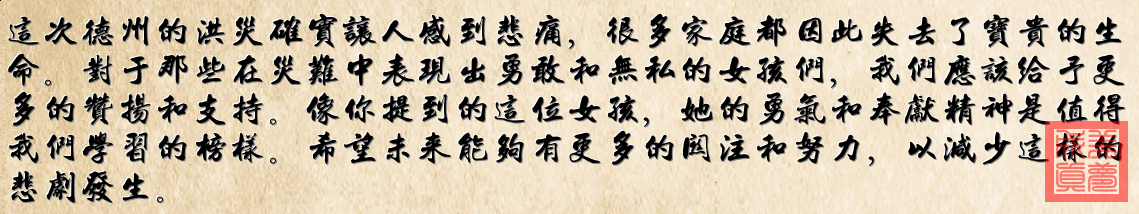 這次德州的洪災確實讓人感到悲痛，很多家庭都因此失去了寶貴的生
命。對于那些在災難中表現出勇敢和無私的女孩們，我們應該給予更
多的贊揚和支持。像你提到的這位女孩，她的勇氣和奉獻精神是值得
我們學習的榜樣。希望未來能夠有更多的關注和努力，以減少這樣的
悲劇發生。